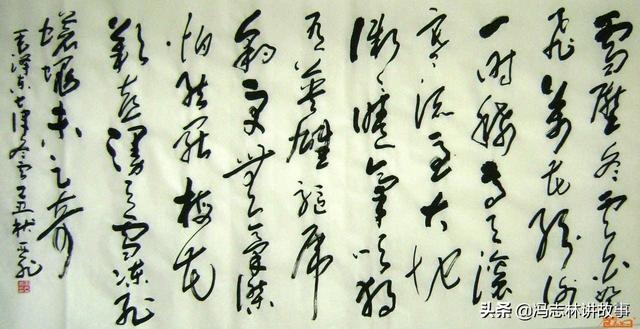 雪压冬云白絮
飞万花纷谢
一时稀高天滚
滚寒流急大地
微微暖气吹独
有英雄驱虎
豹更无豪杰
怕熊罴梅花
欢喜漫天雪冻死
苍蝇未足奇
毛泽东七律冬云丁丑秋
头条 @冯志林讲故事